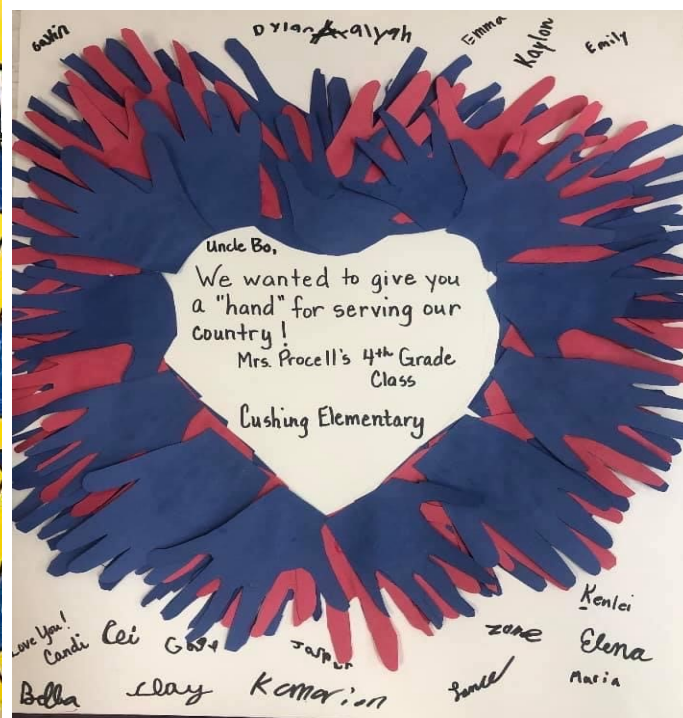 Gavin
Dylan
Emma
Kaylon
Emily
Uncle Bo,
We wanted to give you
a "hand" for serving our
country!
Mrs. Procell's 4th Grade
Class
Cushing Elementary
Kenlei
Love You!
Candi
Cei
Jaspur
zane
Elena
Maria
Bella
clay
Kamarion
Lance